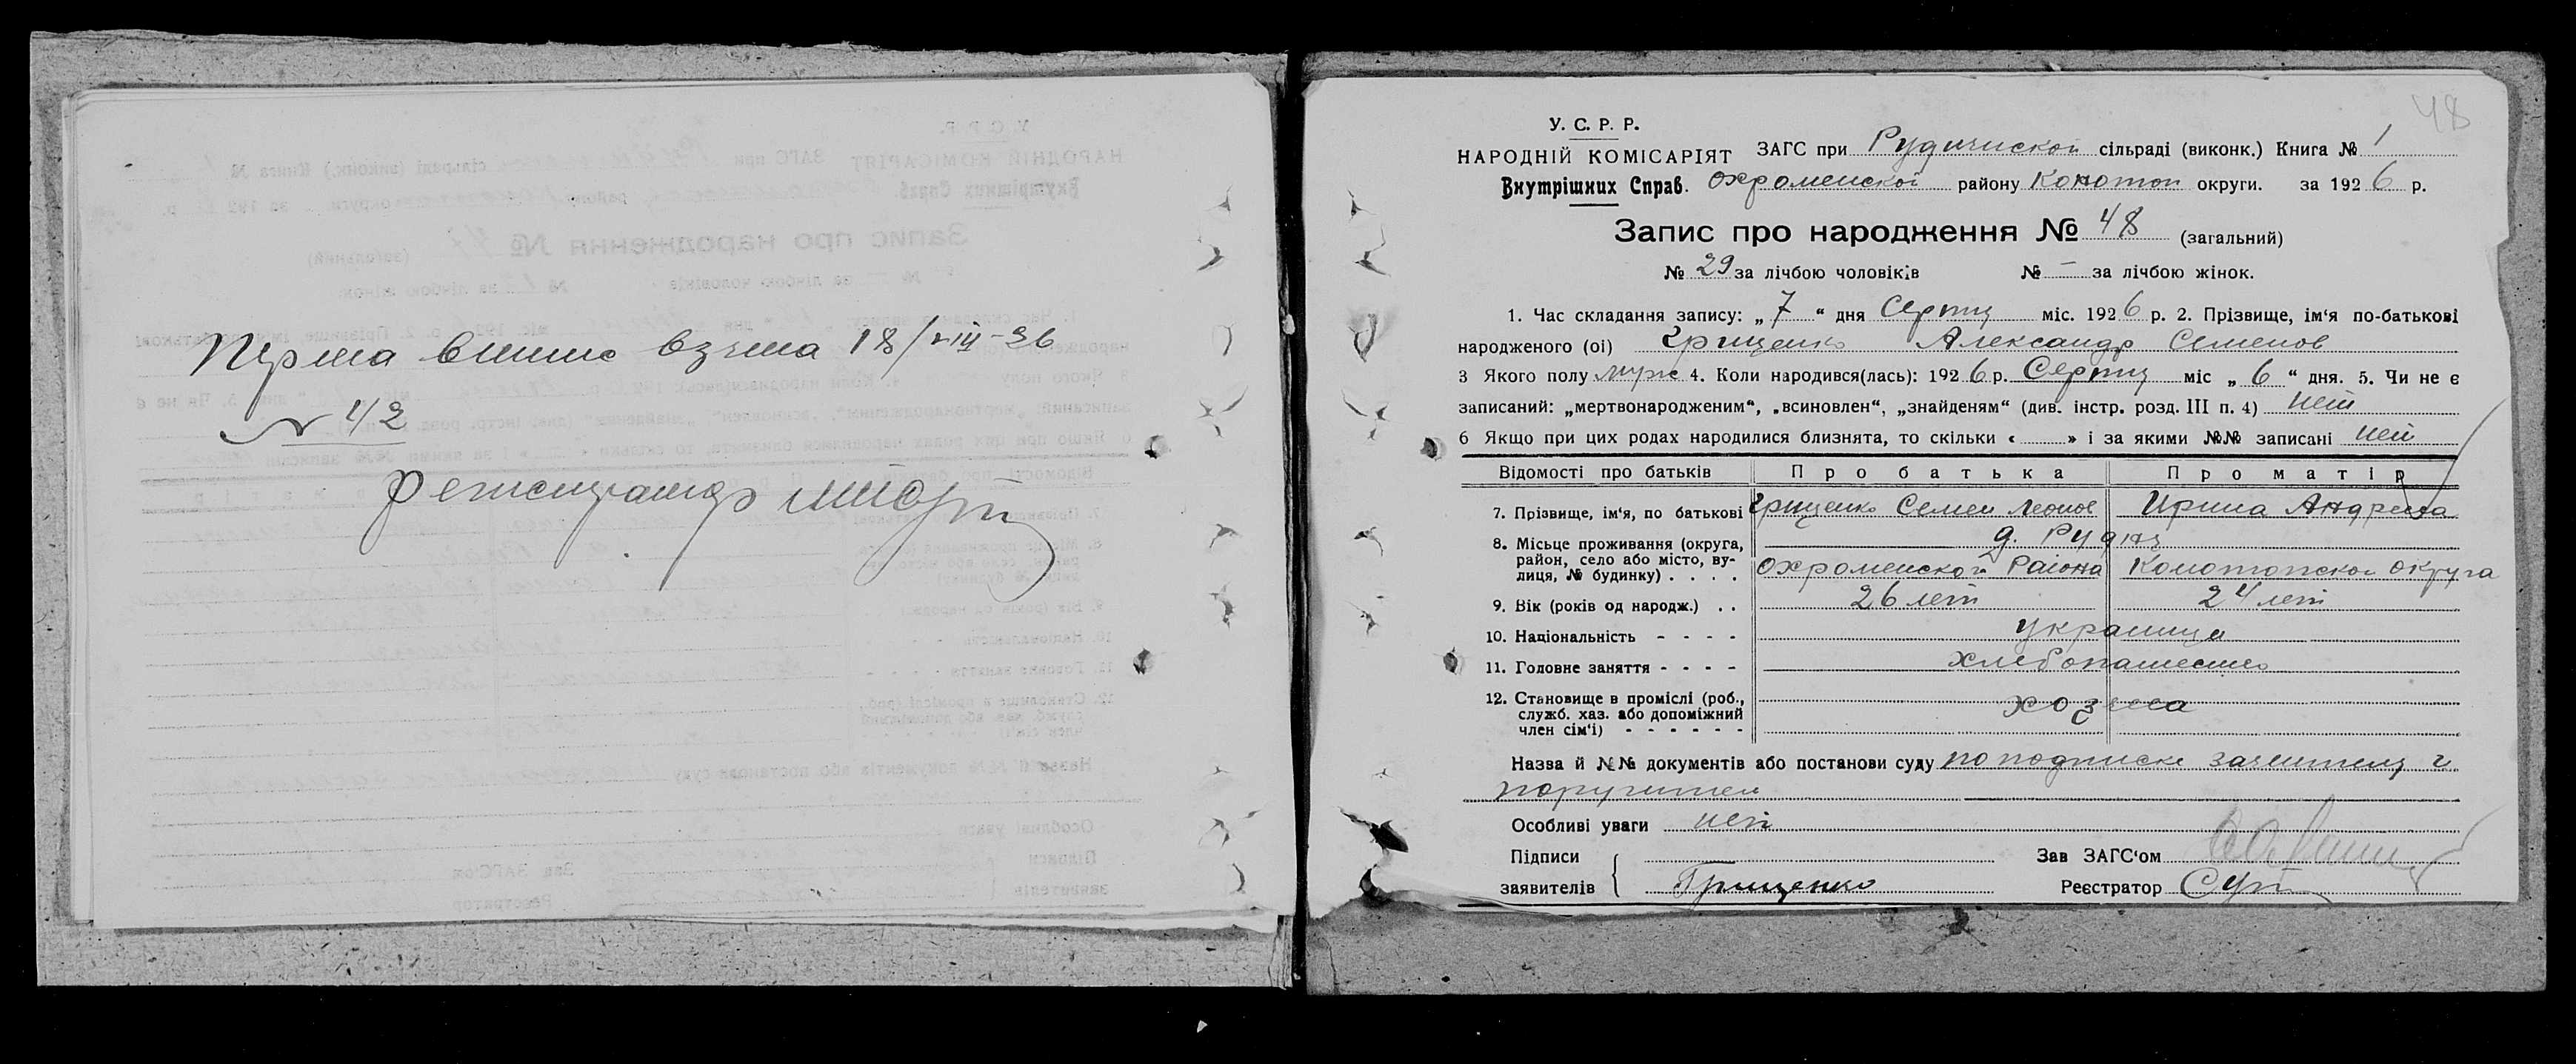 взята 18/VIII-36
№ 42
48
У. С. Р. Р.
НАРОДНІЙ КОМІСАРІЯТ
Внутрішних Справ.
ЗАГС при сільраді (виконк.) Книга № 1
Охроменской району Конотоп округи. за 1926 р.
Запис про народження № 48 (загальний)
№ 29 за лічбою чоловіків № — за лічбою жінок.
1. Час складання запису: „7“ дня Серпня міс. 1926 р. 2. Прізвище, ім‘я по-батькові
народженого (ої) Грищенко Александр Семенов
3 Якого полу муж 4. Коли народився(лась): 1926 р. Серпня міс „6“ дня. 5. Чи не є
записаний: „мертвонародженим“, „всиновлен“, „знайденям“ (див. інстр. розд. III п. 4) нет
6 Якщо при цих родах народилися близнята, то скільки « » і за якими №№ записані нет
Відомості про батьків Про батька Про матір
7. Прізвище, ім‘я, по батькові Грищенко Семен Леонов Ирина Андреева
8. Місьце проживання (округа, район, село або місто, вулиця, № будинку) . . . . д. Рудня
Охроменского Района Конотопского округа
9. Вік (років од народж.) . . 26 лет 24 лет
10. Національність - - - - украинца
11. Головне заняття - - - - хлебопашество
12. Становище в проміслі (роб.,
служб. хаз. або допоміжний
член сім‘ї) - - - - - -
Назва й №№ документів або постанови суду по подписке
Особливі уваги нет
Підписи
заявителів Грищенко
Зав ЗАГС‘ом
Реєстратор